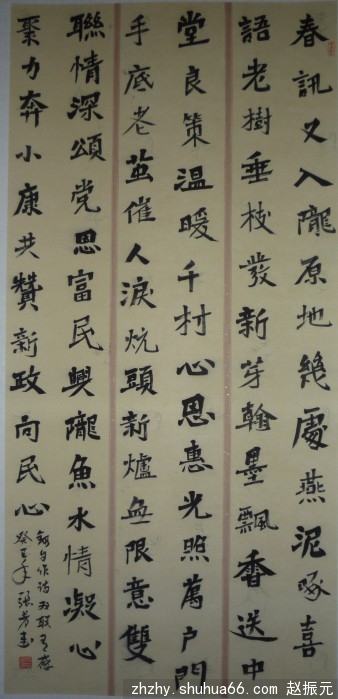 春訊又入隴原地幾處燕泥啄喜
語老樹垂枝發新芽翰墨飄香送中
堂良策温暖千村心恩惠光照萬户門
手底老茧催人淚炕頭新爐無限意雙
聯情深頌党恩富民興隴魚水情凝心
聚力奔小康共贊新政向民心
癸巳年
zhzhy.shuhua66.com 赵振元